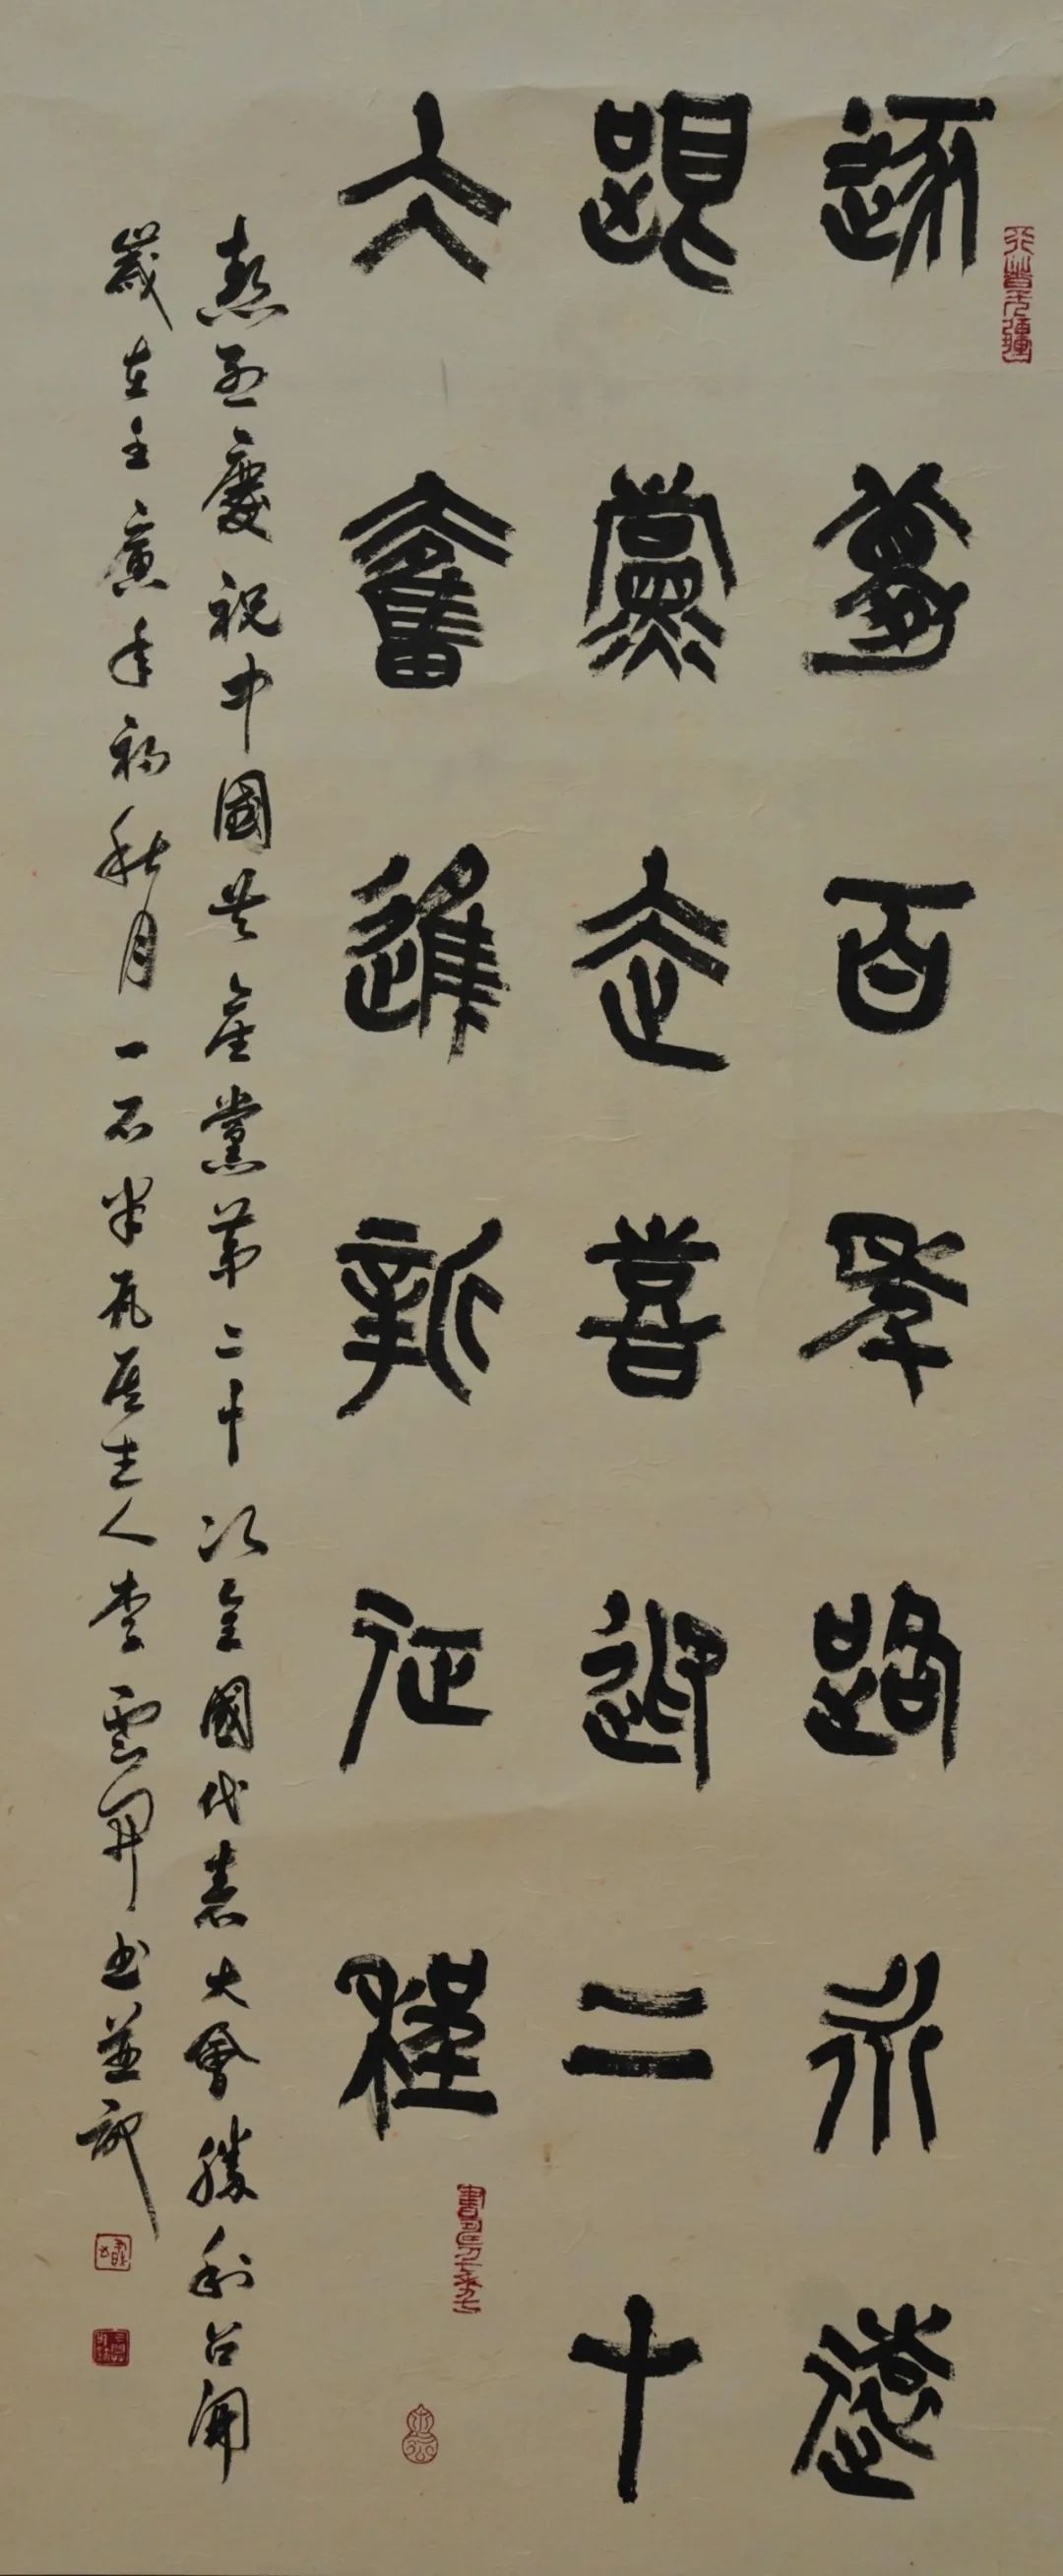 逐夢百年路永遠
跟黨走喜迎二十
大奮進新征程
熱烈慶祝中國共產黨第二十次全國代表大會勝利召開
歲在壬寅年初秋月一石半瓦居主人李雲開书並記